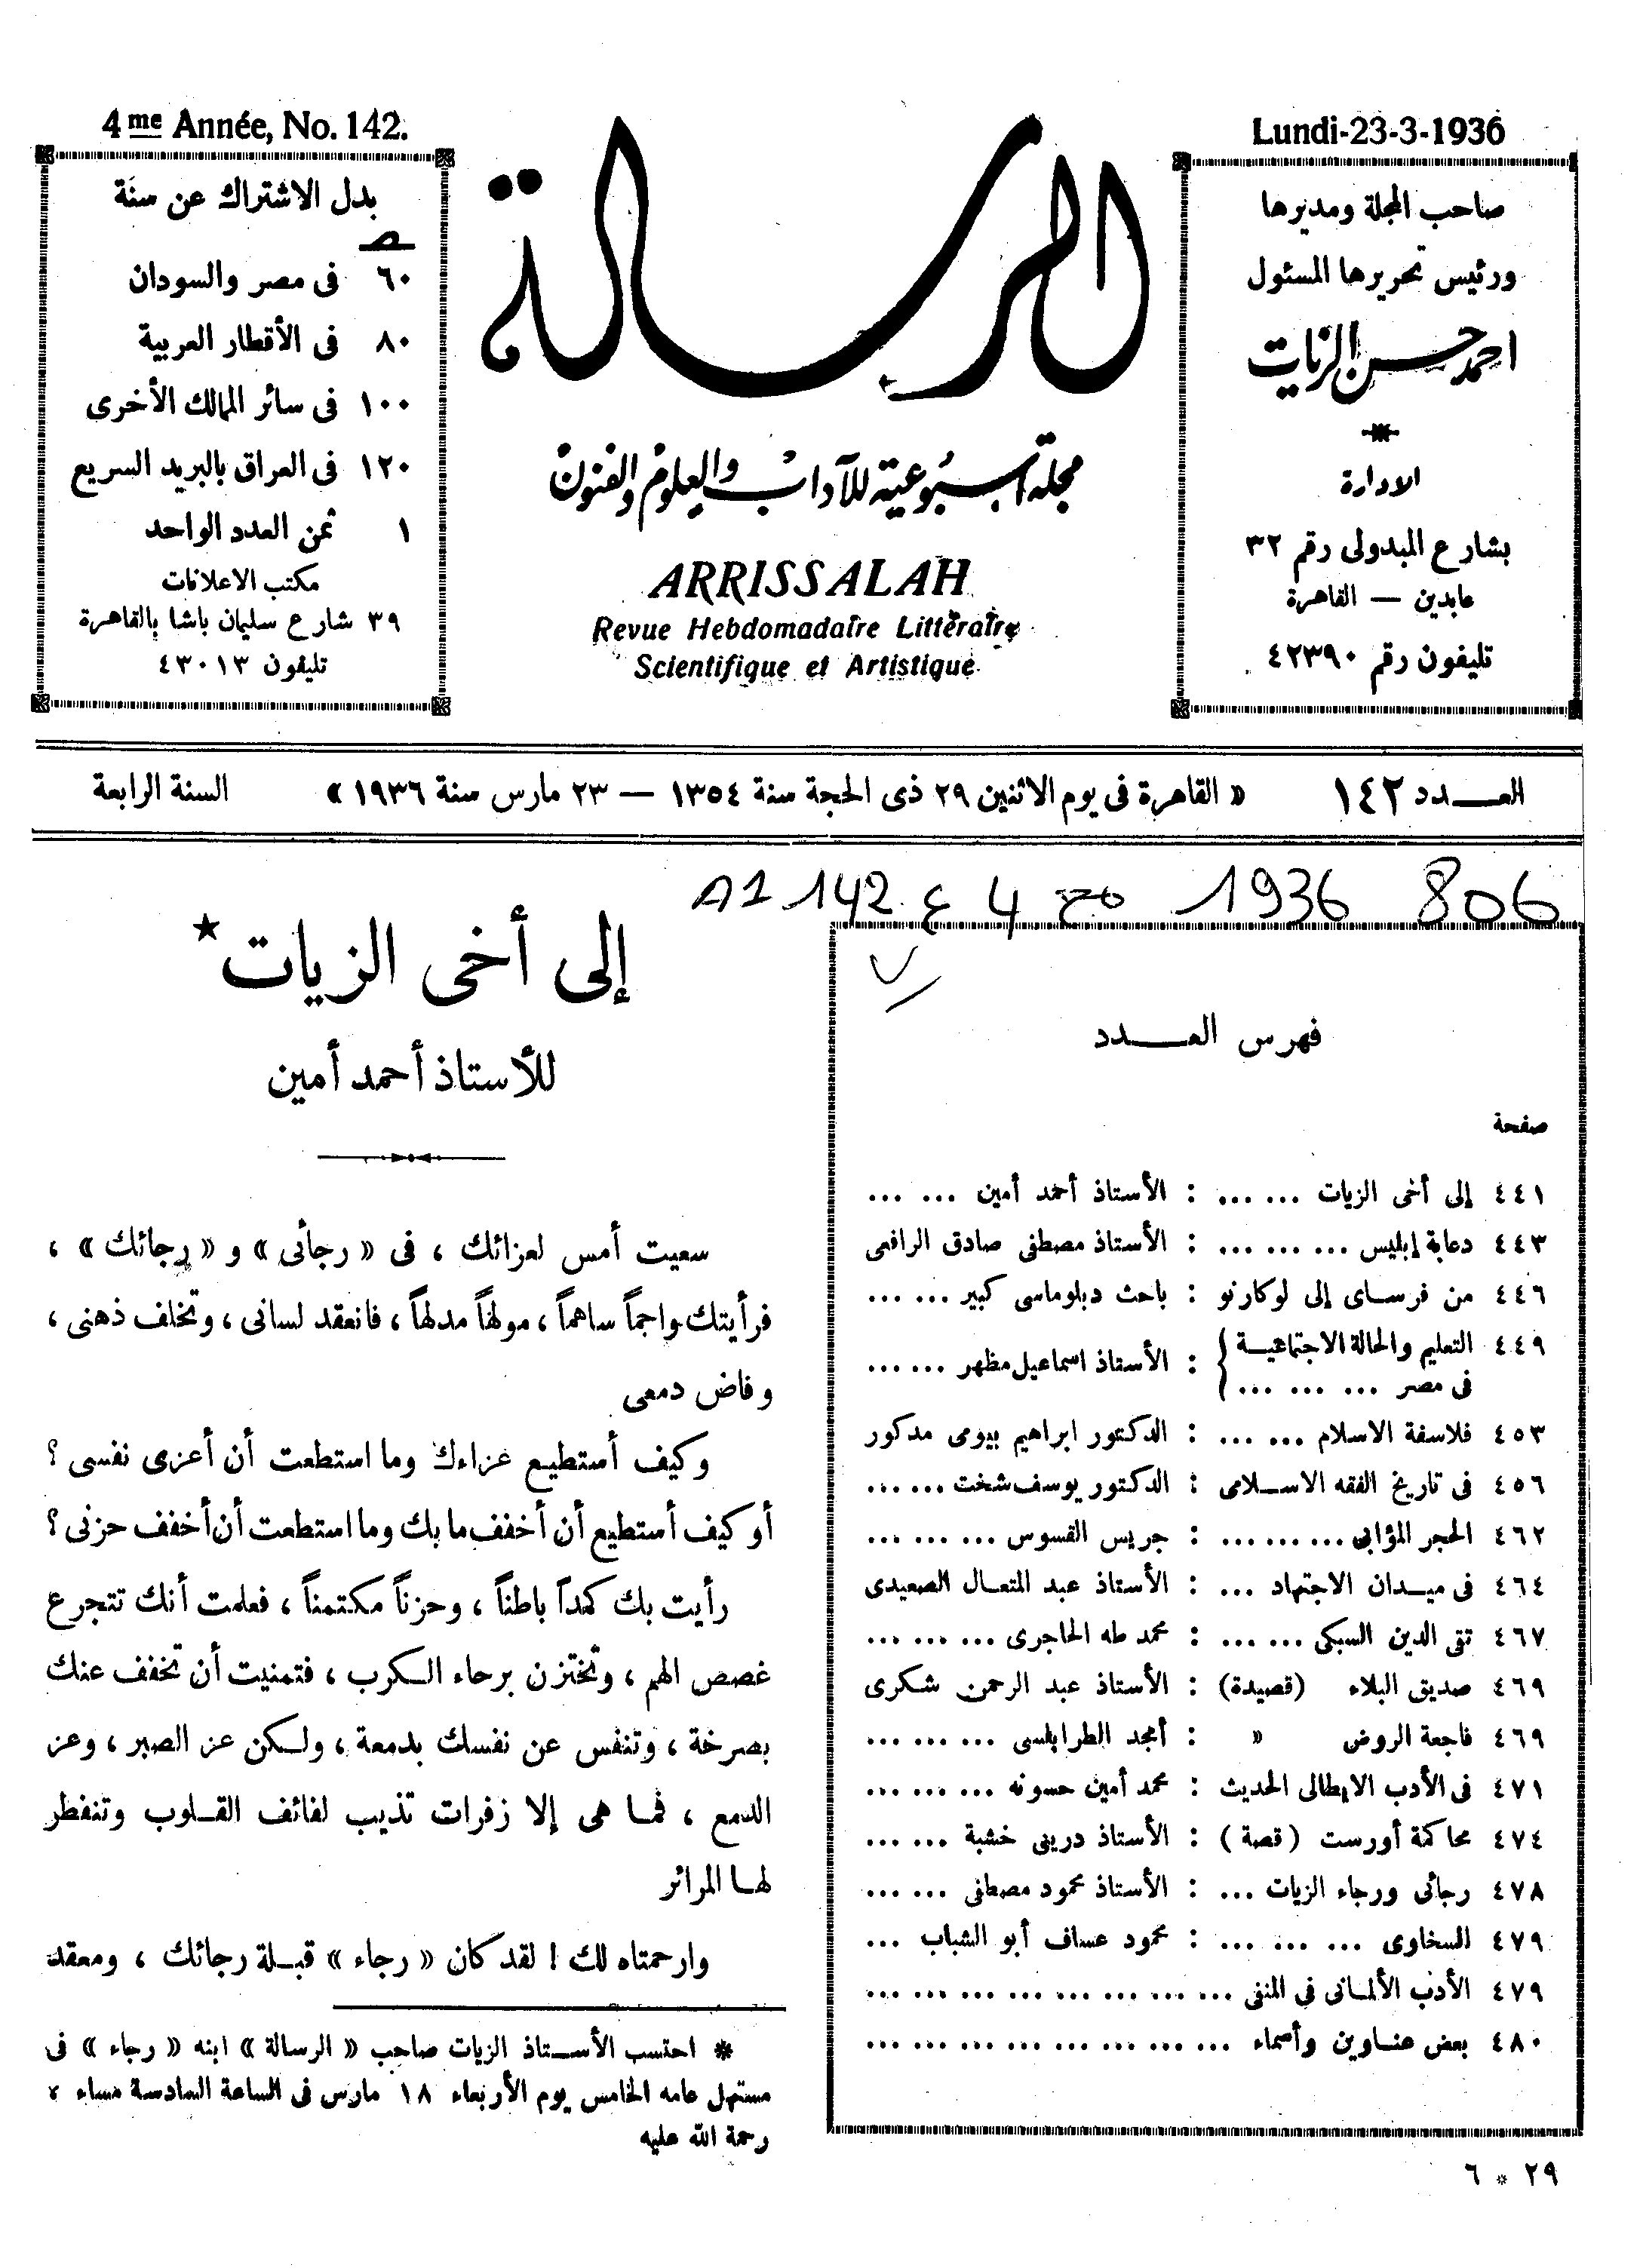 4me Année, No. 142.
Lundi-23-3-1936
صاحب المجلة ومديرها
ورئيس تحريرها المسئول
احمد حسن الزيات
الادارة
بشارع المبدولى رقم ٣٢
عابدين — القاهرة
تليفون رقم ٤٢٣٩٠
الرسالة
مجلة أسبوعية للآداب والعلوم والفنون
ARRISSALAH
Revue Hebdomadaire Littéraire
Scientifique et Artistique
بدل الاشتراك عن سنة
٦٠ فى مصر والسودان
٨٠ فى الأقطار العربية
١٠٠ فى سائر الممالك الأخرى
١٢٠ فى العراق بالبريد السريع
١ ثمن العدد الواحد
مكتب الاعلانات
٣٩ شارع سليمان باشا بالقاهرة
تليفون ٤٣٠١٣
العـــدد ١٤٢ « القاهرة فى يوم الاثنين ٢٩ ذى الحجة سنة ١٣٥٤ — ٢٣ مارس سنة ١٩٣٦ » السنة الرابعة
142 ع 4 1936 806
فهرس العـــدد
صفحة
٤٤١ إلى أخى الزيات ... ... : الأستاذ أحمد أمين ... ...
٤٤٣ دعابة إبليس ... ... ... : الأستاذ مصطفى صادق الرافعى
٤٤٦ من فرساى إلى لوكارنو : باحث دبلوماسى كبير ... ...
٤٤٩ التعليم والحالة الاجتماعيـة
فى مصر ... ... ... : الأستاذ اسماعيل مظهر ... ...
٤٥٣ فلاسفة الاسلام ... ... : الدكتور ابراهيم بيومى مدكور
٤٥٦ فى تاريخ الفقه الاسـلامى : الدكتور يوسف شخت ... ...
٤٦٢ الحجر المؤابى ... ... ... : جريس القسوس ... ... ...
٤٦٤ فى ميـدان الاجتهاد ... : الأستاذ عبد المتعال الصعيدى
٤٦٧ تقى الدين السبكى ... ... : محمد طه الحاجرى ... ... ...
٤٦٩ صديق البلاء (قصيدة) : الأستاذ عبد الرحمن شكرى
٤٦٩ فاجعة الروض » : أمجد الطرابلسى ... ... ...
٤٧١ فى الأدب الايطالى الحديث : محمد أمين حسونه ... ... ...
٤٧٤ محاكمة أورست (قصة) : الأستاذ درينى خشبة ... ...
٤٧٨ رجائى ورجاء الزيات ... : الأستاذ محمود مصطفى ... ...
٤٧٩ السخاوى ... ... ... : محمود عساف أبو الشباب ...
٤٧٩ الأدب الألمانى فى المنفى ... ... ... ... ... ... ... ...
٤٨٠ بعض عنـاوين وأسماء ... ... ... ... ... ... ... ...
٢٩ * ٦
إلى أخى الزيات *
للأستاذ أحمد أمين
سعيت أمس لعزائك ، فى « رجائى » و « رجائك » ،
فرأيتك واجماً ساهماً ، مولهاً مدلهاً ، فانعقد لسانى ، وتخلف ذهنى ،
وفاض دمعى
وكيف أستطيع عزاءك وما استطعت أن أعزى نفسى ؟
أو كيف أستطيع أن أخفف ما بك وما استطعت أن أخفف حزنى ؟
رأيت بك كمداً باطناً ، وحزناً مكتمناً ، فعلمت أنك تتجرع
غصص الهم ، وتختزن برحاء الكرب ، فتمنيت أن تخفف عنك
بصرخة ، وتنفس عن نفسك بدمعة ، ولكن عز الصبر ، وعز
الدمع ، فمـا هى إلا زفرات تذيب لفائف القـلوب وتنفطر
لهـا المرائر
وارحمتاه لك ! لقد كان « رجاء » قبـلة رجائك ، ومعقد
* احتسب الأسـتاذ الزيات صاحب « الرسالة » ابنه « رجاء » فى
مستهل عامه الخامس يوم الأربعاء ١٨ مارس فى الساعة السادسة مساء ،
رحمة الله عليه